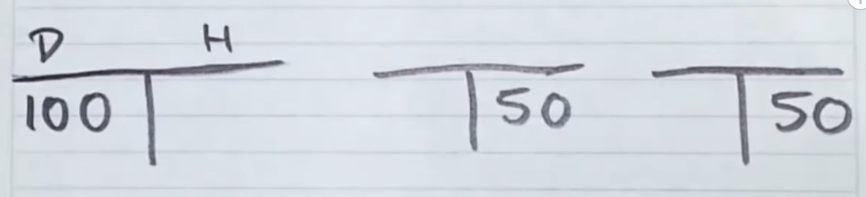 D H
100 50 50